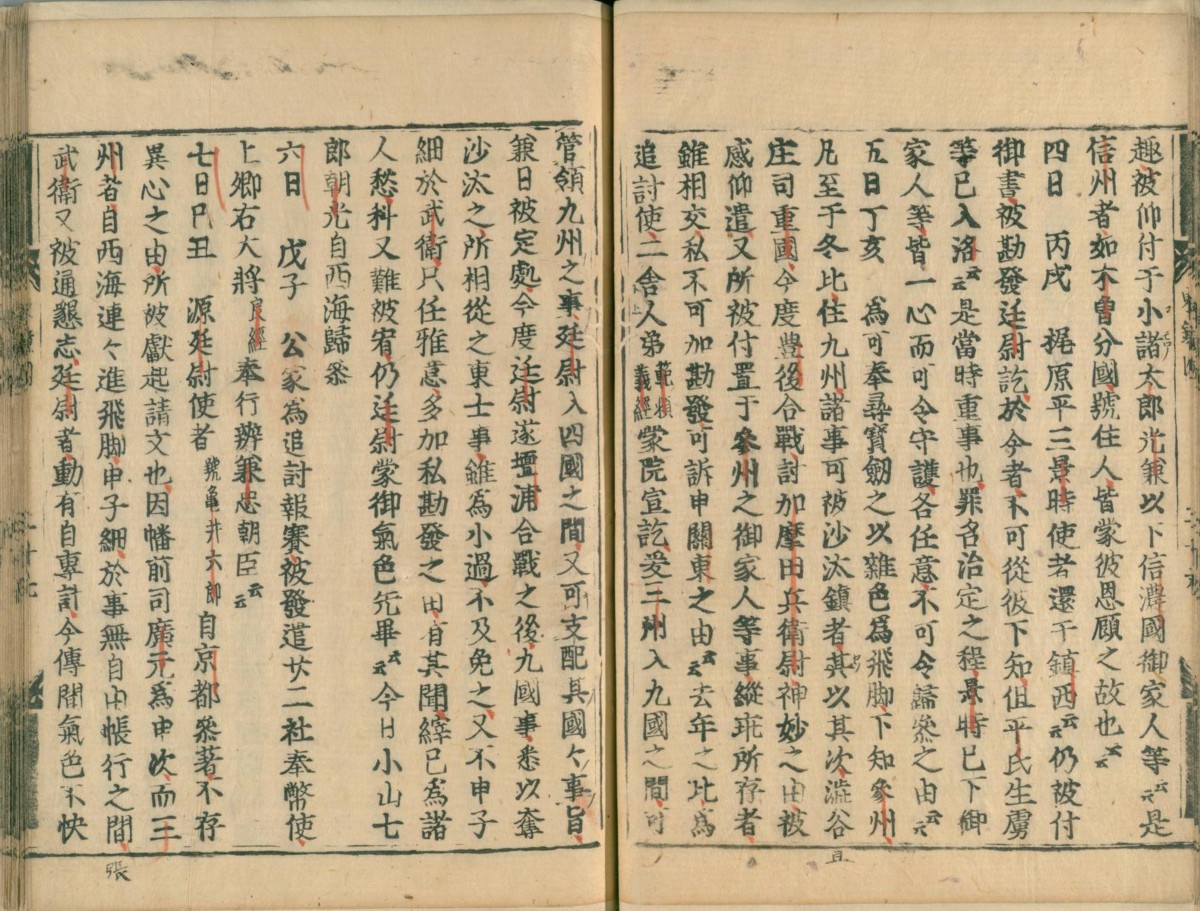 趣被仰付于小諸太郎光兼以下信濃國御家人等云云是
信州者如木曽分國號住人皆蒙彼恩顧之故也云云
四日　丙戌　梶原平三景時使者還于鎮西云云仍被付
御書被勘發廷尉訖於今者不可從彼下知但平氏生虜
等已入洛云云是當時重事也罪名治定之程景時已下御
家人等皆一心而可令守護各任意不可令歸參之由云云
五日丁亥　為可奉尋寳劔之以雜色為飛脚下知參州
凡至于冬比住九州諸事可被沙汰鎮者其以其次澁谷
庄司重國今度豊後合戰討加摩田兵衛尉神妙之由被
感仰遣又所被付置于參州之御家人等事縱雖所存者
雖相交私不可加勘發可訴申關東之由云云去年之比為
追討使二舎人弟範頼義經蒙院宣訖爰三州入九國之間可
管領九州之事廷尉入四國之間又可支配其國々事旨
兼日被定處今度廷尉遂壇浦合戰之後九國事悉以奪
沙汰之所相從之東士事雖為小過不及免之又不申子
細於武衛只任雅意多加私勘發之由有其聞縡已為諸
人愁科又難被宥仍廷尉蒙御氣色先畢云云今日小山七
郎朝光自西海歸參
六日　戊子　公家為追討報賽被發遣廿二社奉幣使
上卿右大將良經奉行辨兼忠朝臣云云
七日己丑　源廷尉使者號龜井六郎自京都參著不存
異心之由所被獻起請文也因幡前司廣元為申次而三
州者自西海連々進飛脚申子細於事無自由帳行之間
武衛又被通懇志廷尉者動有自專計今傳聞氣色不快
張